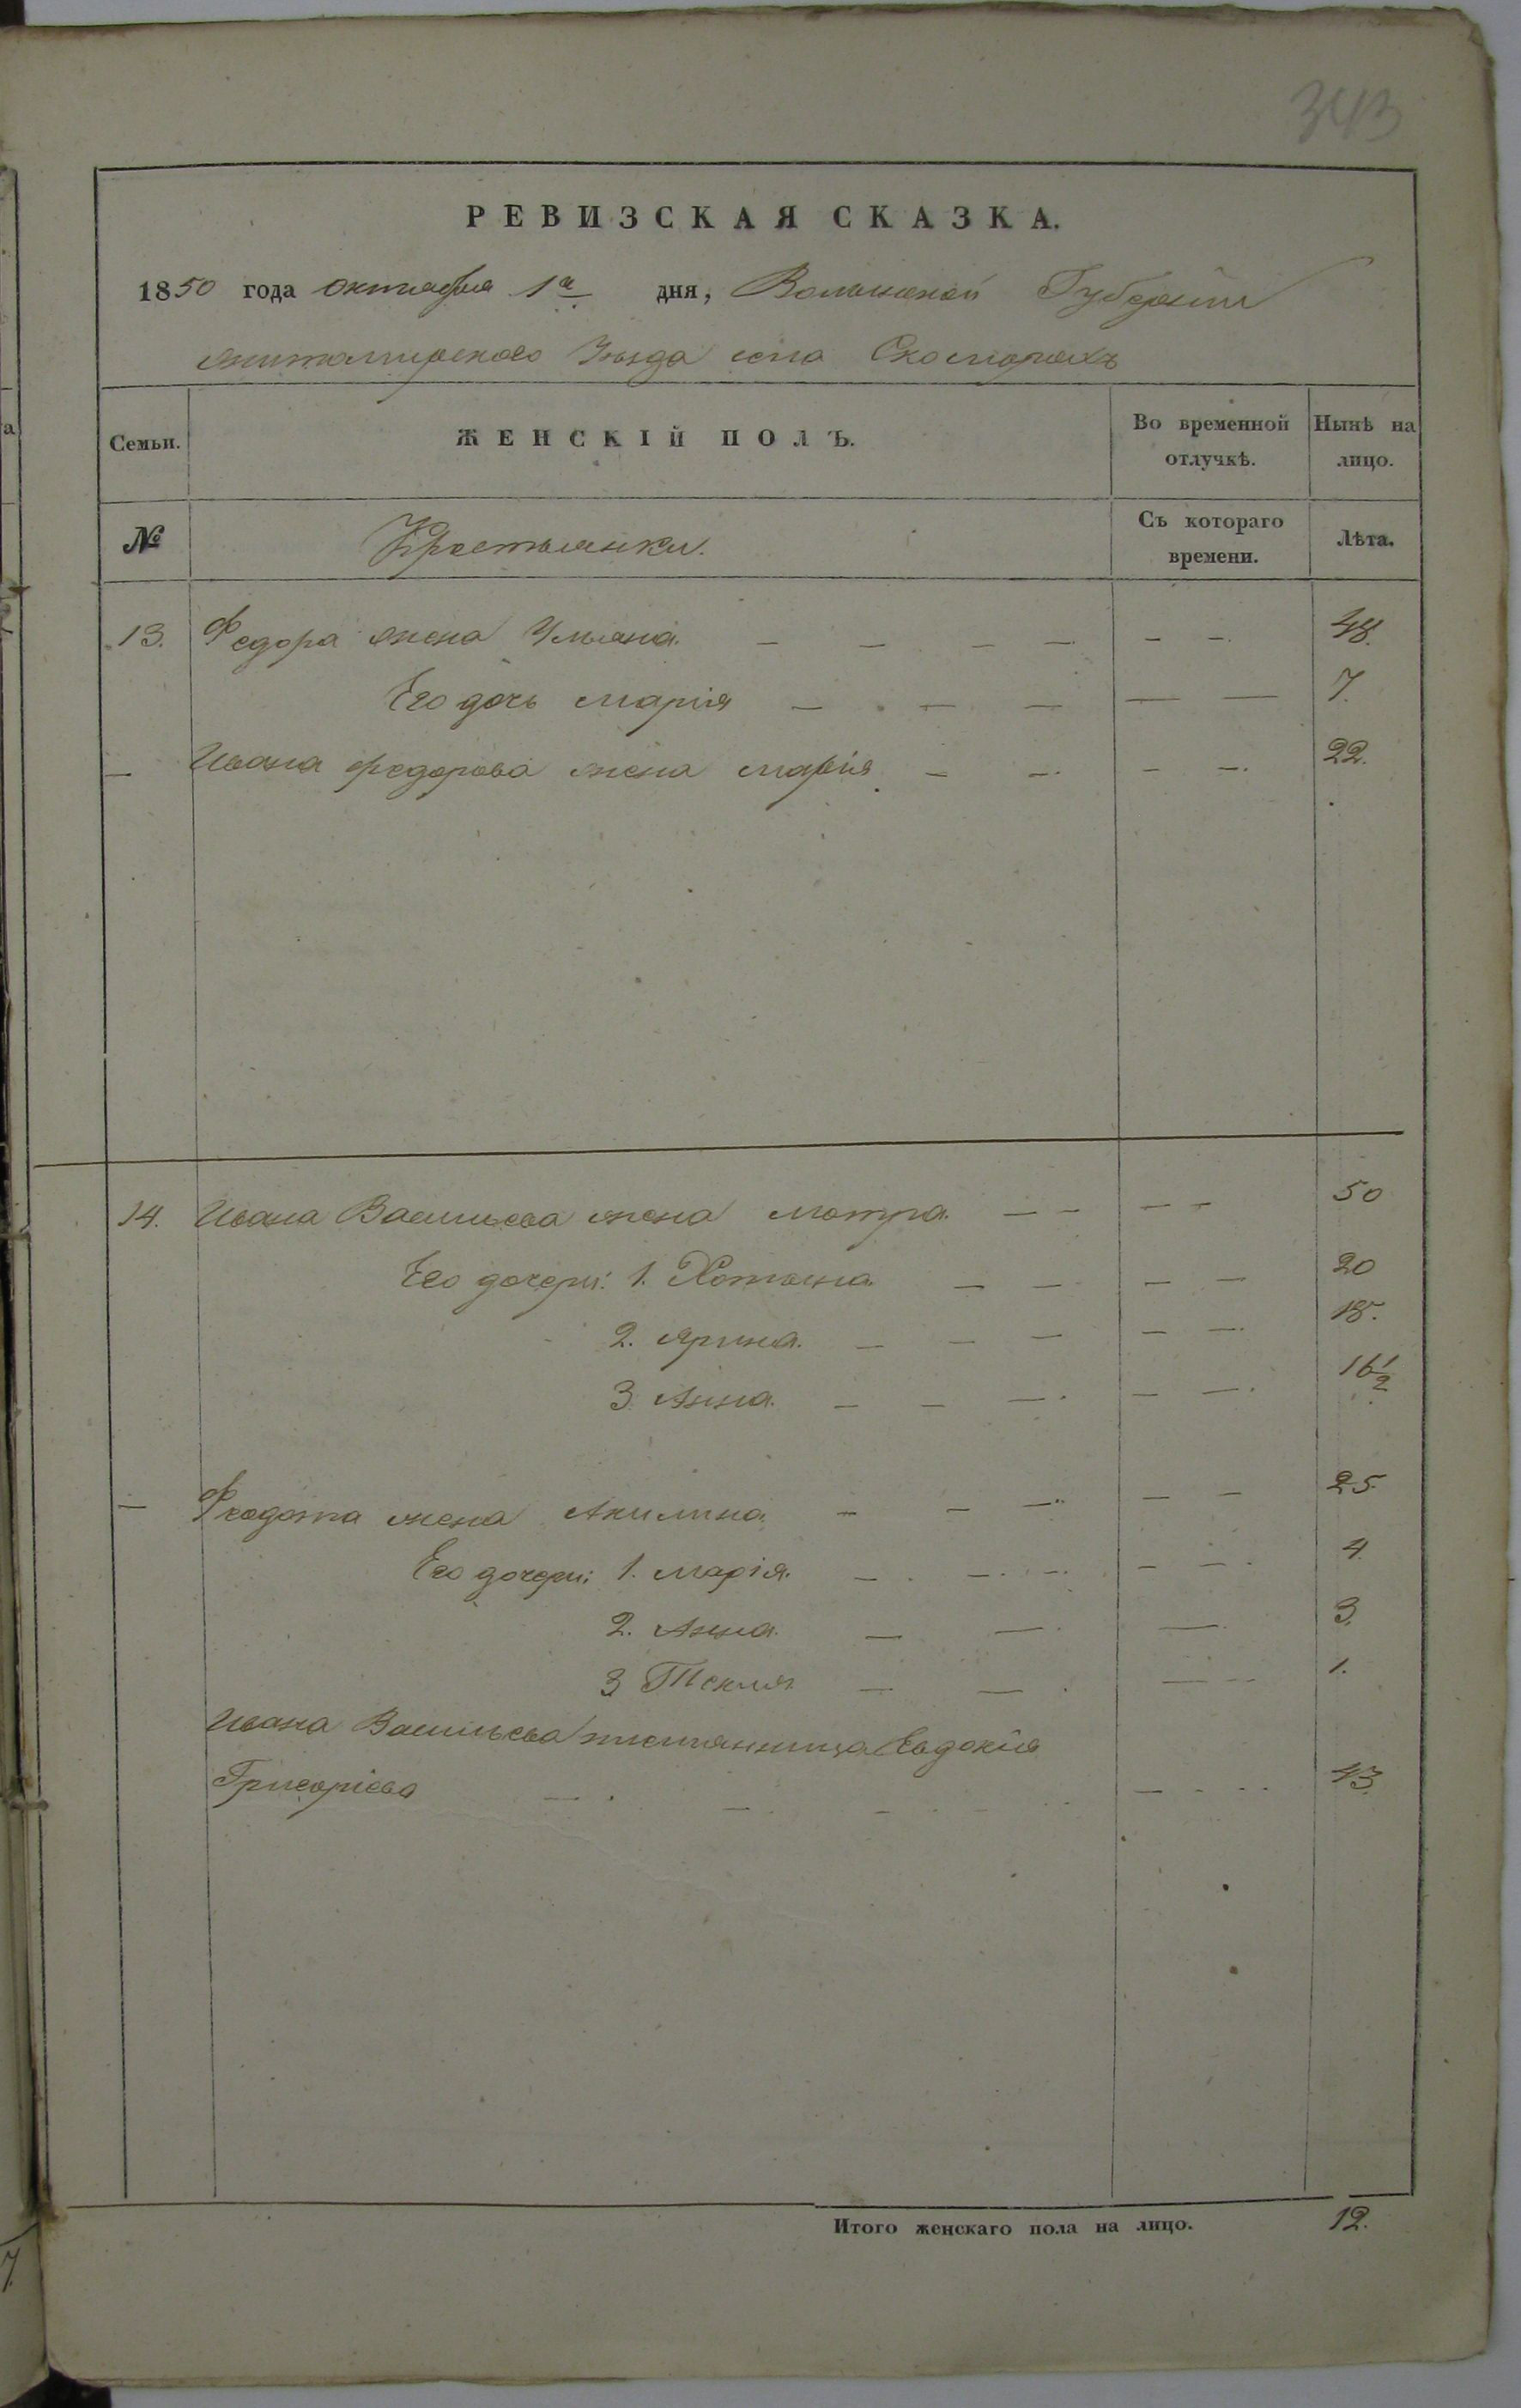 343
РЕВИЗСКАЯ СКАЗКА.
1850 года октября 1го дня, Волынской Губернии
житомирского Уезда села Скоморохъ
Семьи. ЖЕНСКІЙ ПОЛЪ. Во временной отлучкѣ. Нынѣ на лицо.
№ Крестьянки. Съ котораго времени. Лѣта.
13. Федора жена Ульяна. — — — — — — 48.
Его дочь марія — — — — — 7.
— Ивана федорова жена марія — — — — 22.
14. Ивана Васильева жена мотра. — — — — 50
Его дочери: 1. Хотына — — — — 20
2. Ярина. — — — — — 18.
3 Анна. — — — — — 16½
— Феодота жена Акилина — — — — — 25.
Его дочери: 1. марія. — — — — — 4.
2. Анна. — — — 3.
3 Текля — — — — 1.
Ивана Васильева племянница Евдокія
Григоріева — — — — — — 43.
Итого женскаго пола на лицо. 12.
а
7.